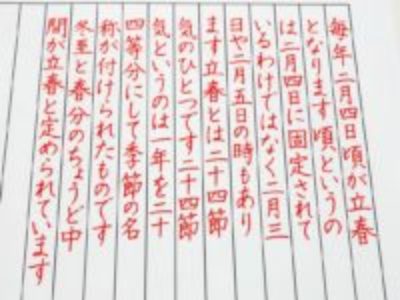 毎年二月四日頃が立春
となります頃というの
は二月四日に固定されて
いるわけではなく二月三
日や二月五日の時もあり
ます立春とは二十四節
気のひとつです二十四節
気というのは一年を二十
四等分にして季節の名
称が付けられたものです
冬至と春分のちょうど中
間が立春と定められています